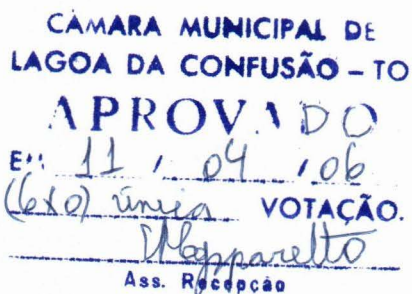 CÂMARA MUNICIPAL DE
LAGOA DA CONFUSÃO – TO
APROVADO
Em 11 / 04 / 06
(6x0) única VOTAÇÃO.
Ass. Recepção